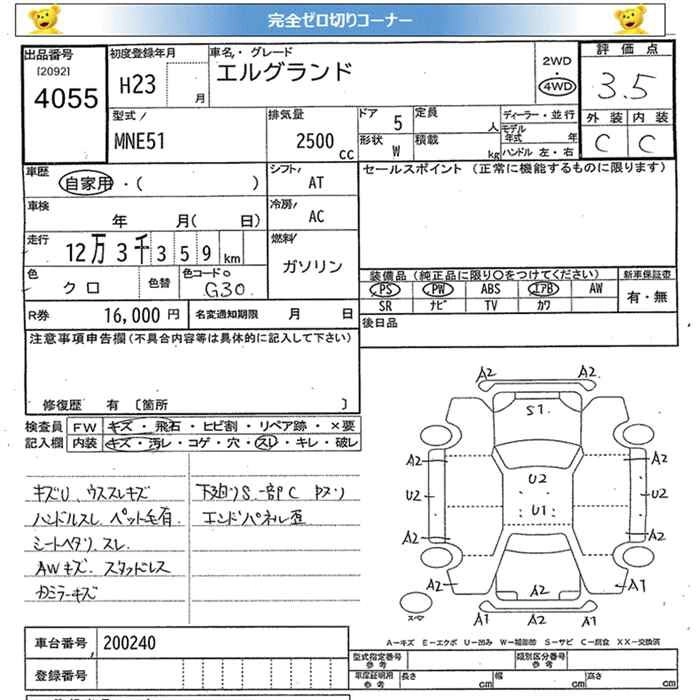 完全ゼロ切りコーナー
出品番号 初度登録年月 車名・グレード 評価点
[2092] 2WD
4055 H23 月 エルグランド 4WD 3.5
型式 排気量 ドア 5 定員 人 ディーラー・並行 外装 内装
MNE51 2500 cc 形状 W 積載 kg モデル年式 年 C C
ハンドル 左・右
車歴 自家用・( ) シフト AT セールスポイント (正常に機能するものに限ります)
車検 年 月( 日) 冷房 AC
走行 12万3千359km 燃料 ガソリン
色 クロ 色替 色コードNo G30 装備品 (純正品に限り○をつけてください) 新車保証書
PS PW ABS エアB AW 有・無
R券 16,000 円 名変通知期限 月 日 SR ナビ TV カワ
注意事項申告欄(不具合内容等は具体的に記入して下さい) 後日品
修復歴 有 〔箇所 〕
検査員 FW キズ・飛石・ヒビ割・リペア跡・×要
記入欄 内装 キズ・汚レ・コゲ・穴・スレ・キレ・破レ
キズU、ウススレキズ 下廻りS、一部C
ハンドルスレ、ペット毛有 エンドパネル歪
シートヘタリ、スレ
AWキズ、スタッドレス
ミラーキズ
A2 A2
S1
A2 A2
U2 U2 U2
U1
A2 A2
A2 A2 A1
スペア A1 A2 A1
A−キズ E−エクボ U−凹み W−補修跡 S−サビ C−腐食 XX−交換済
車台番号 200240 型式指定番号 参考 類別区分番号 参考
登録番号 車庫証明用 参考 長さ cm 幅 cm 高さ cm